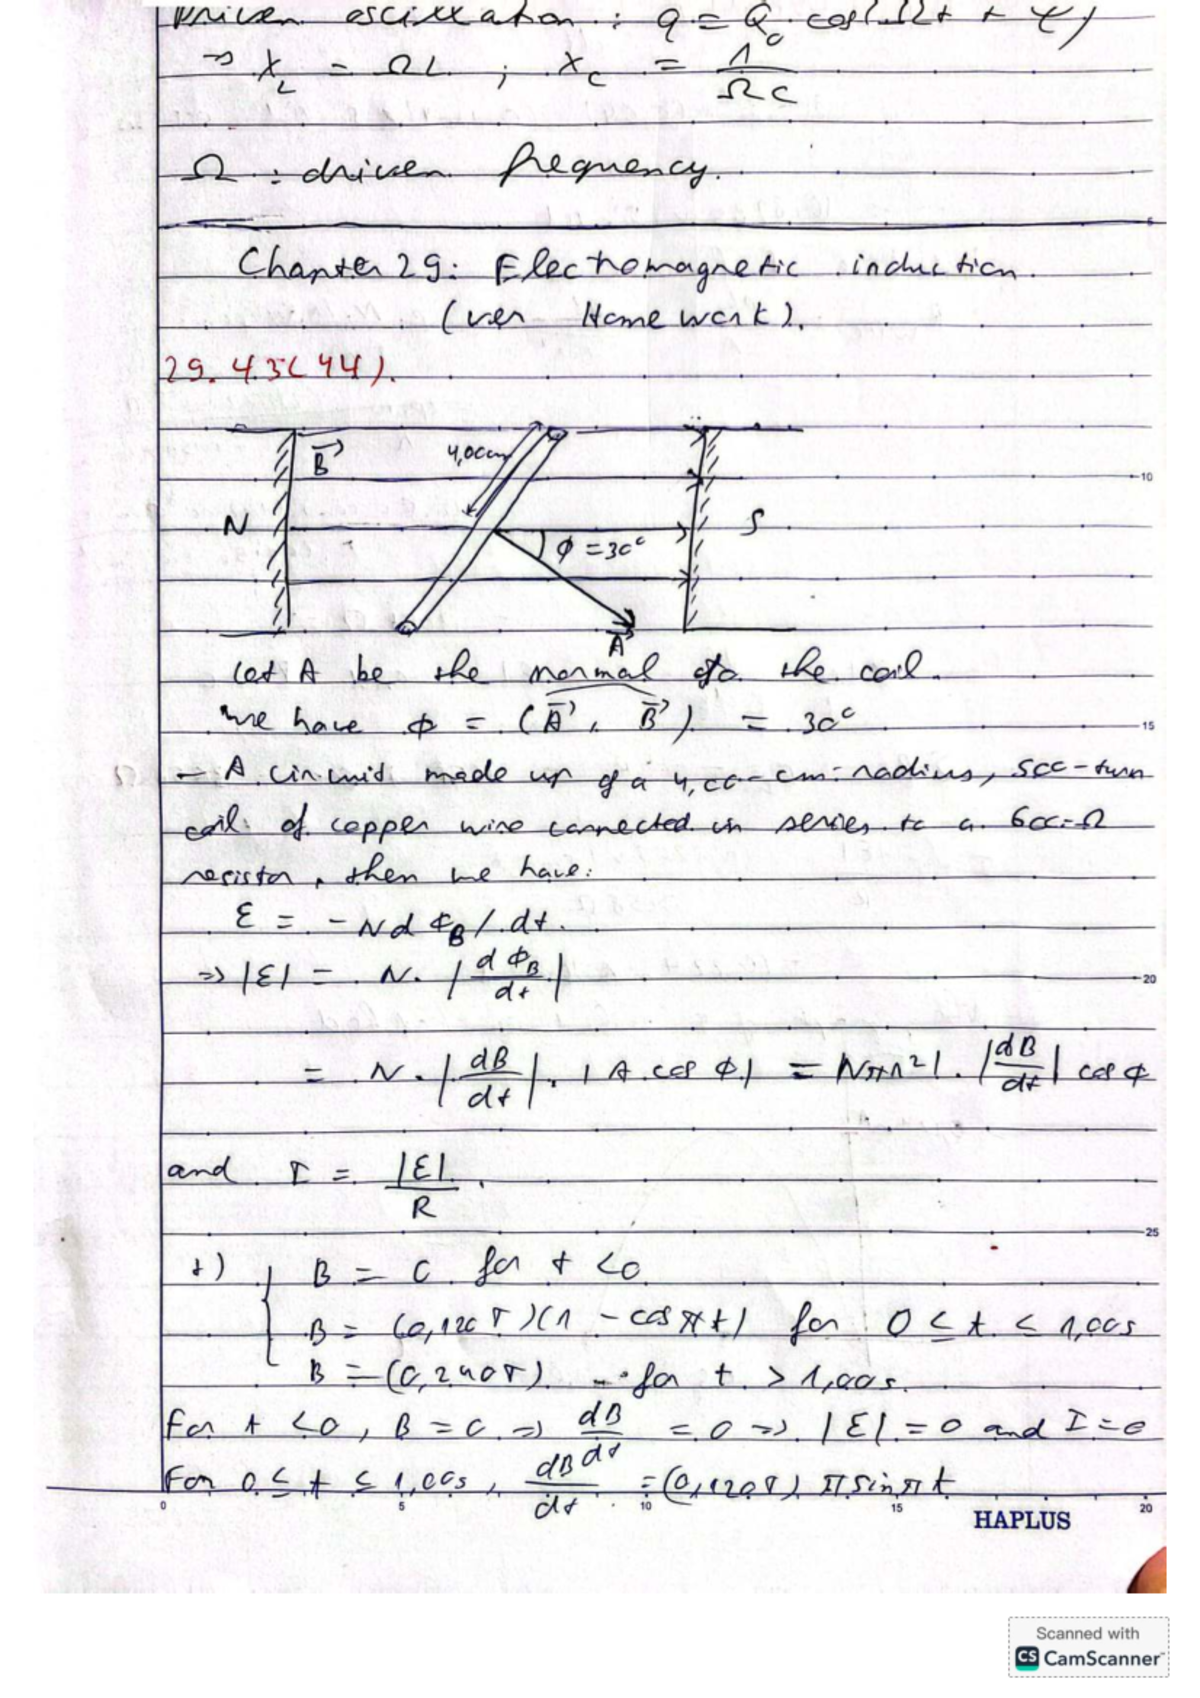 Driven oscillation : q = Q₀ cos(Ωt + φ)
⇒ X_L = ΩL ; X_C = 1/(ΩC)
Ω : driven frequency.
Chapter 29: Electromagnetic induction.
(ver Homework).
29.43(44).
B⃗
4,00cm
N
ϕ = 30°
S
A⃗
Let A be the normal to the coil.
We have ϕ = (A⃗, B⃗) = 30°
- A circuit made up of a 4,00-cm-radius, 500-turn
coil of copper wire connected in series to a 600-Ω
resistor, then we have:
ε = -N dΦ_B/dt.
⇒ |ε| = N. |dΦ_B/dt|
= N. |dB/dt|. |A.cos ϕ| = |Nπr²|. |dB/dt| cos ϕ
and I = |ε|/R.
+) B = 0 for t < 0
B = (0,120 T)(1 - cos πt) for 0 ≤ t ≤ 1,00s
B = (0,240T) for t > 1,00s.
For t < 0, B = 0 ⇒ dB/dt = 0 ⇒ |ε| = 0 and I = 0
For 0 ≤ t ≤ 1,00s, dB/dt = (0,120T) π sin πt
5
10
15
20
25
0 5 10 15 20
HAPLUS
Scanned with
CS CamScanner